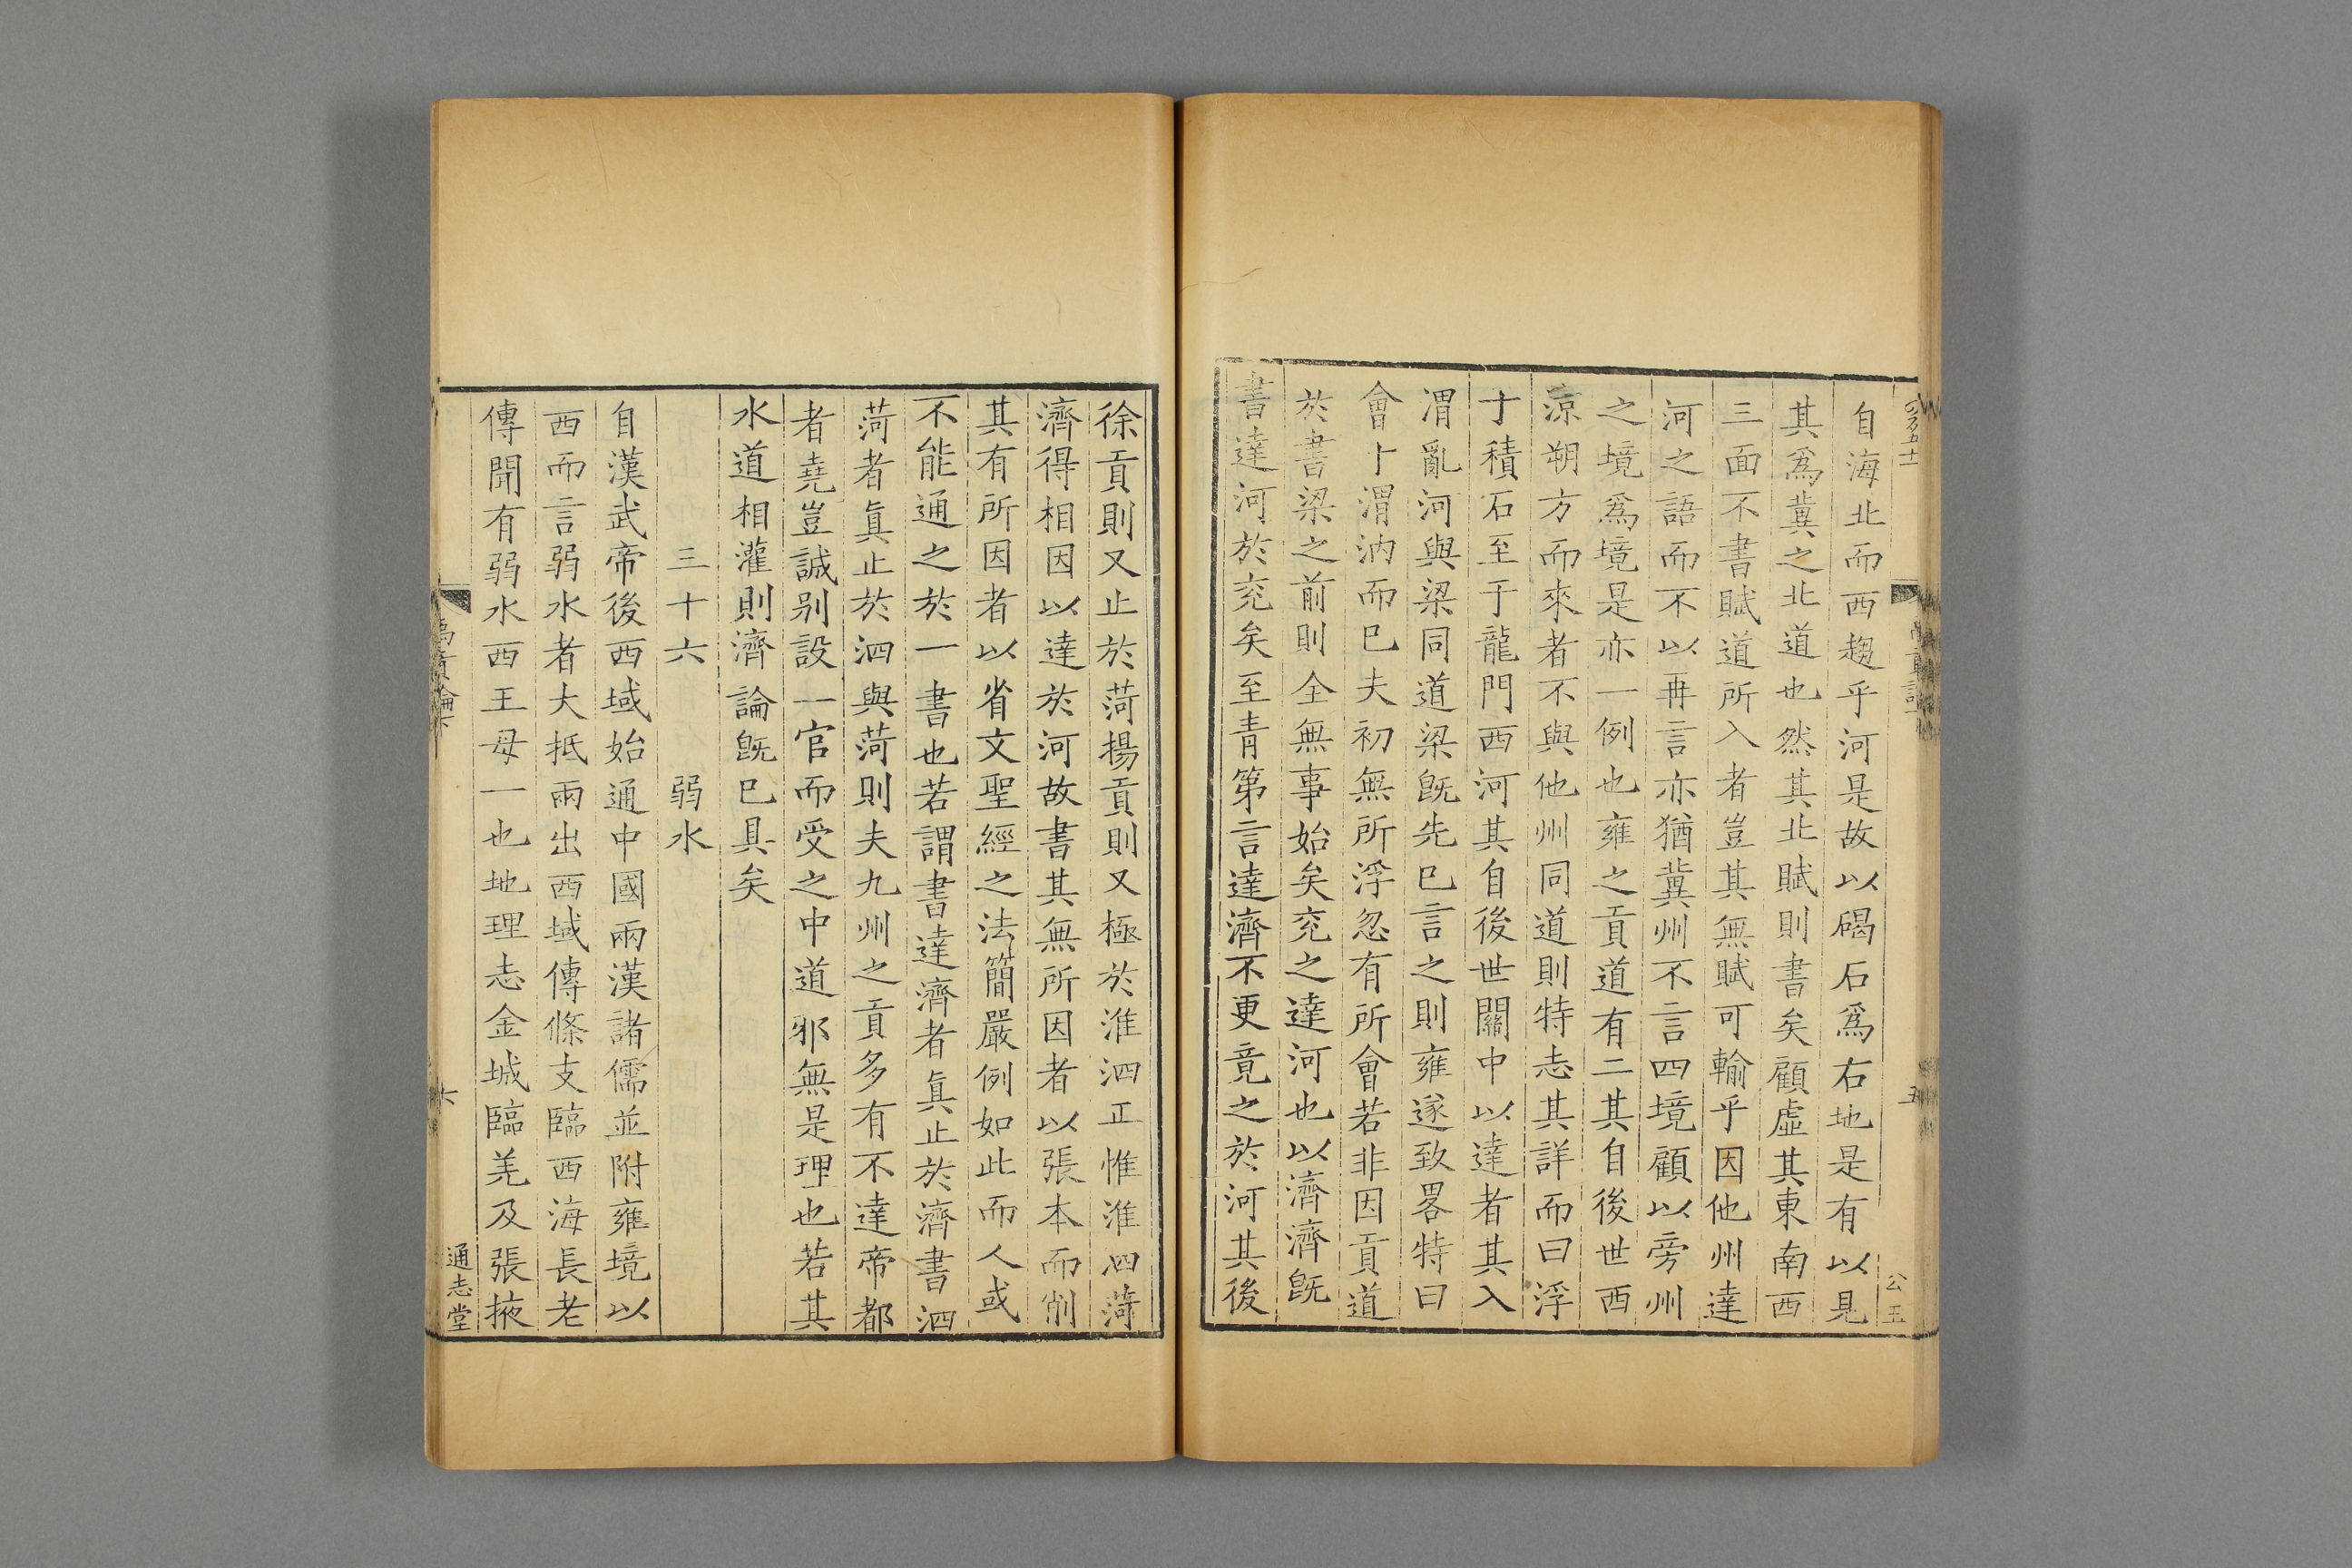 自海北而西趨乎河是故以碣石爲右地是有以見
其爲冀之北道也然其北賦則書矣顧虛其東南西
三面不書賦道所入者豈其無賦可輸乎因他州達
河之語而不以再言亦猶冀州不言四境顧以旁州
之境爲境是亦一例也雍之貢道有二其自後世西
涼朔方而來者不與他州同道則特志其詳而曰浮
于積石至于龍門西河其自後世關中以達者其入
渭亂河與梁同道梁旣先巳言之則雍遂致畧特曰
會于渭汭而巳夫初無所浮忽有所會若非因貢道
於書梁之前則全無事始矣兖之達河也以濟濟旣
書達河於兖矣至青第言達濟不更竟之於河其後
公玉
徐貢則又止於菏揚貢則又極於淮泗正惟淮泗菏
濟得相因以達於河故書其無所因者以張本而削
其有所因者以省文聖經之法簡嚴例如此而人或
不能通之於一書也若謂書達濟者眞止於濟書泗
菏者眞止於泗與菏則夫九州之貢多有不達帝都
者堯豈誠别設一官而受之中道邪無是理也若其
水道相灌則濟論旣巳具矣
三十六 弱水
自漢武帝後西域始通中國兩漢諸儒並附雍境以
西而言弱水者大抵兩出西域傳條支臨西海長老
傳聞有弱水西王母一也地理志金城臨羌及張掖
禹貢論下 六 通志堂